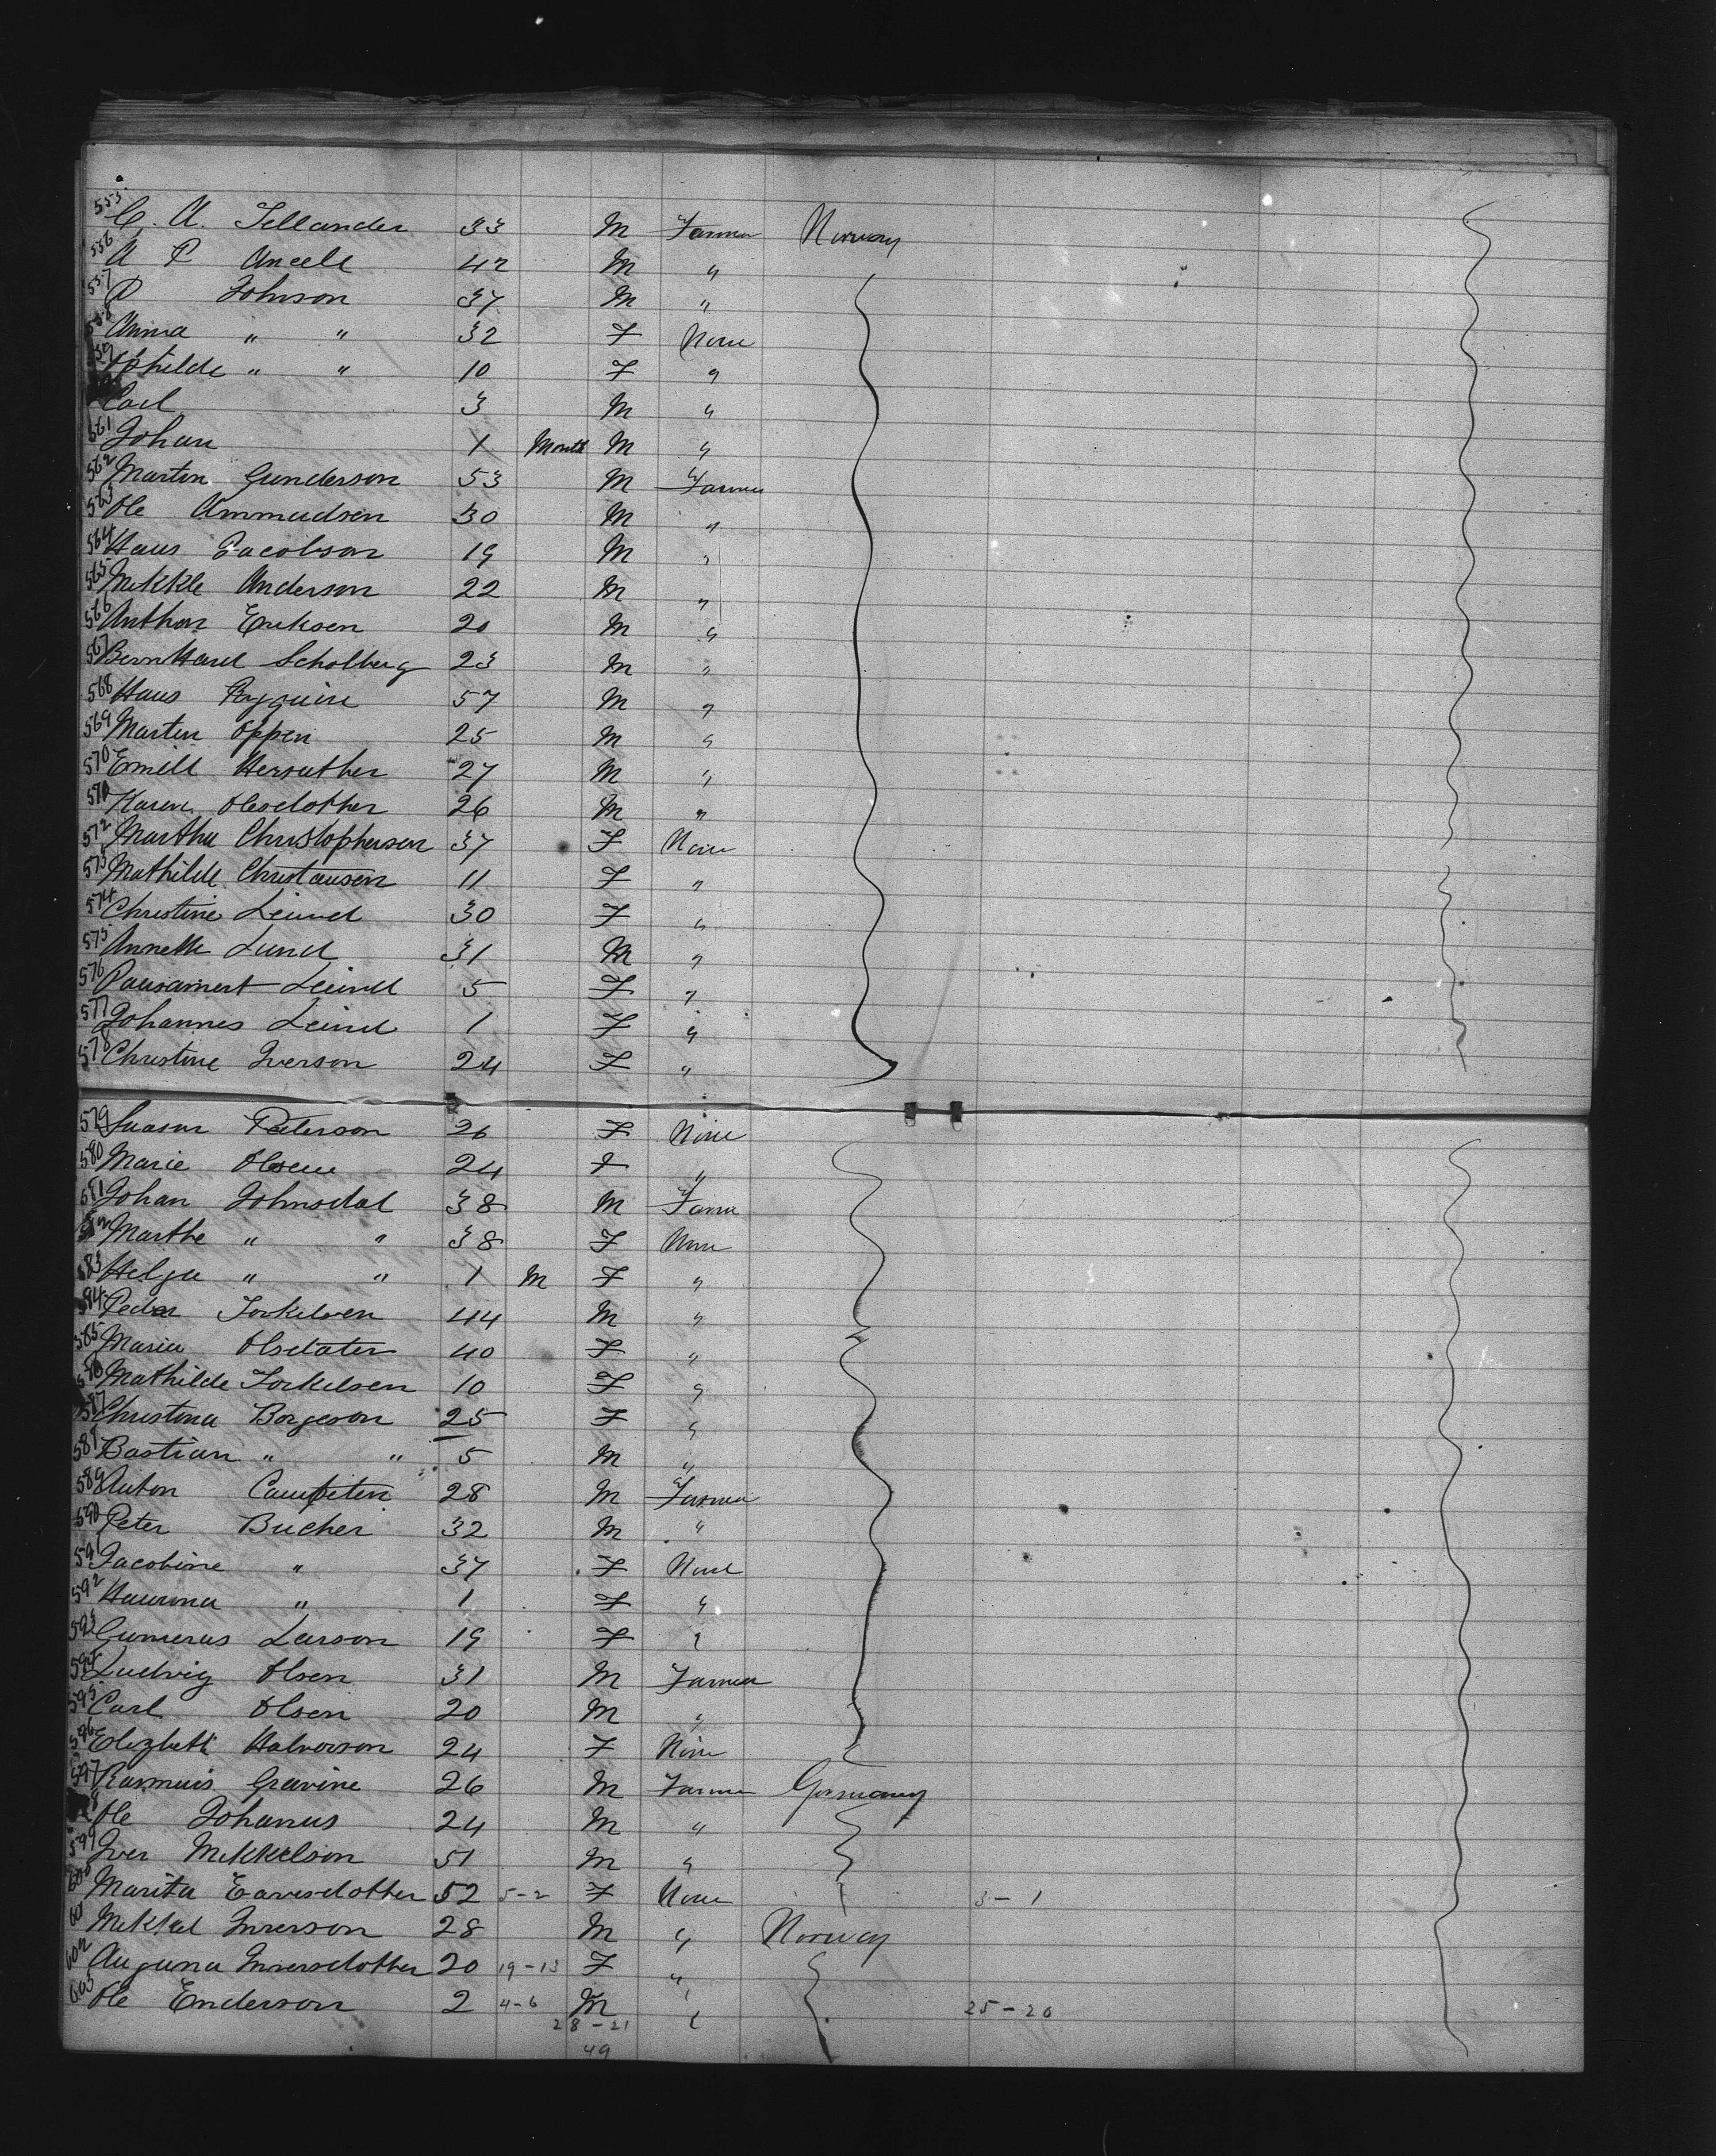 553 C. A. Tellander 33 M Farmer Norway
556 A P Aneell 42 M "
557 P Johnson 37 M "
558 Anna " " 32 F None
559 " " 10 F "
Carl 3 M "
561 Johan 1 Month M "
562 Martin Gunderson 53 M Farmer
563 Ole Ammudsen 30 M "
564 Hans Jacobson 19 M "
565 Mikkle Anderson 22 M "
566 Anthon Eriksen 20 M "
567 Bernhard Scholberg 23 M "
568 Hans 57 M "
569 Martin Oppen 25 M "
570 Emill Hersather 27 M "
570 Karen Olesdother 26 M "
572 Martha Christophersen 37 F None
573 Mathilde Christansen 11 F "
574 Christine Leind 30 F "
575 Annette Lund 31 M "
576 Leind 5 F "
577 Johannes Leind 1 F "
578 Christine Iverson 24 F "
579 Peterson 26 F None
580 Marie Olsen 24 F "
581 Johan Johnsdal 38 M Farm
Marthe " " 38 F None
83 Helga " " 1 M F "
84 Peder Torkelsen 44 M "
585 Maria Olsdater 40 F "
Mathilde Torkelsen 10 F "
587 Christina Borgeson 25 F "
588 Bastian " " 5 M "
589 Anton 28 M Farmer
590 Peter Bucher 32 M "
591 Jacobine " 37 F None
592 " 1 F "
593 Gumerus Larson 19 F "
594 Ludvig Olsen 31 M Farmer
595 Carl Olsen 20 M "
596 Elizbeth Halvorson 24 F None
597 Rasmuis Gravine 26 M Farmer Germany
8 Ole Johanus 24 M "
599 Iver Mikkelson 51 M "
600 Marita Earesdother 52 5-2 F None 3-1
601 Mikkel Inverson 28 M " Norway
602 Auguna Inversdother 20 19-13 F "
603 Ole Enderson 2 4-6 M " 25-20
28-21
49